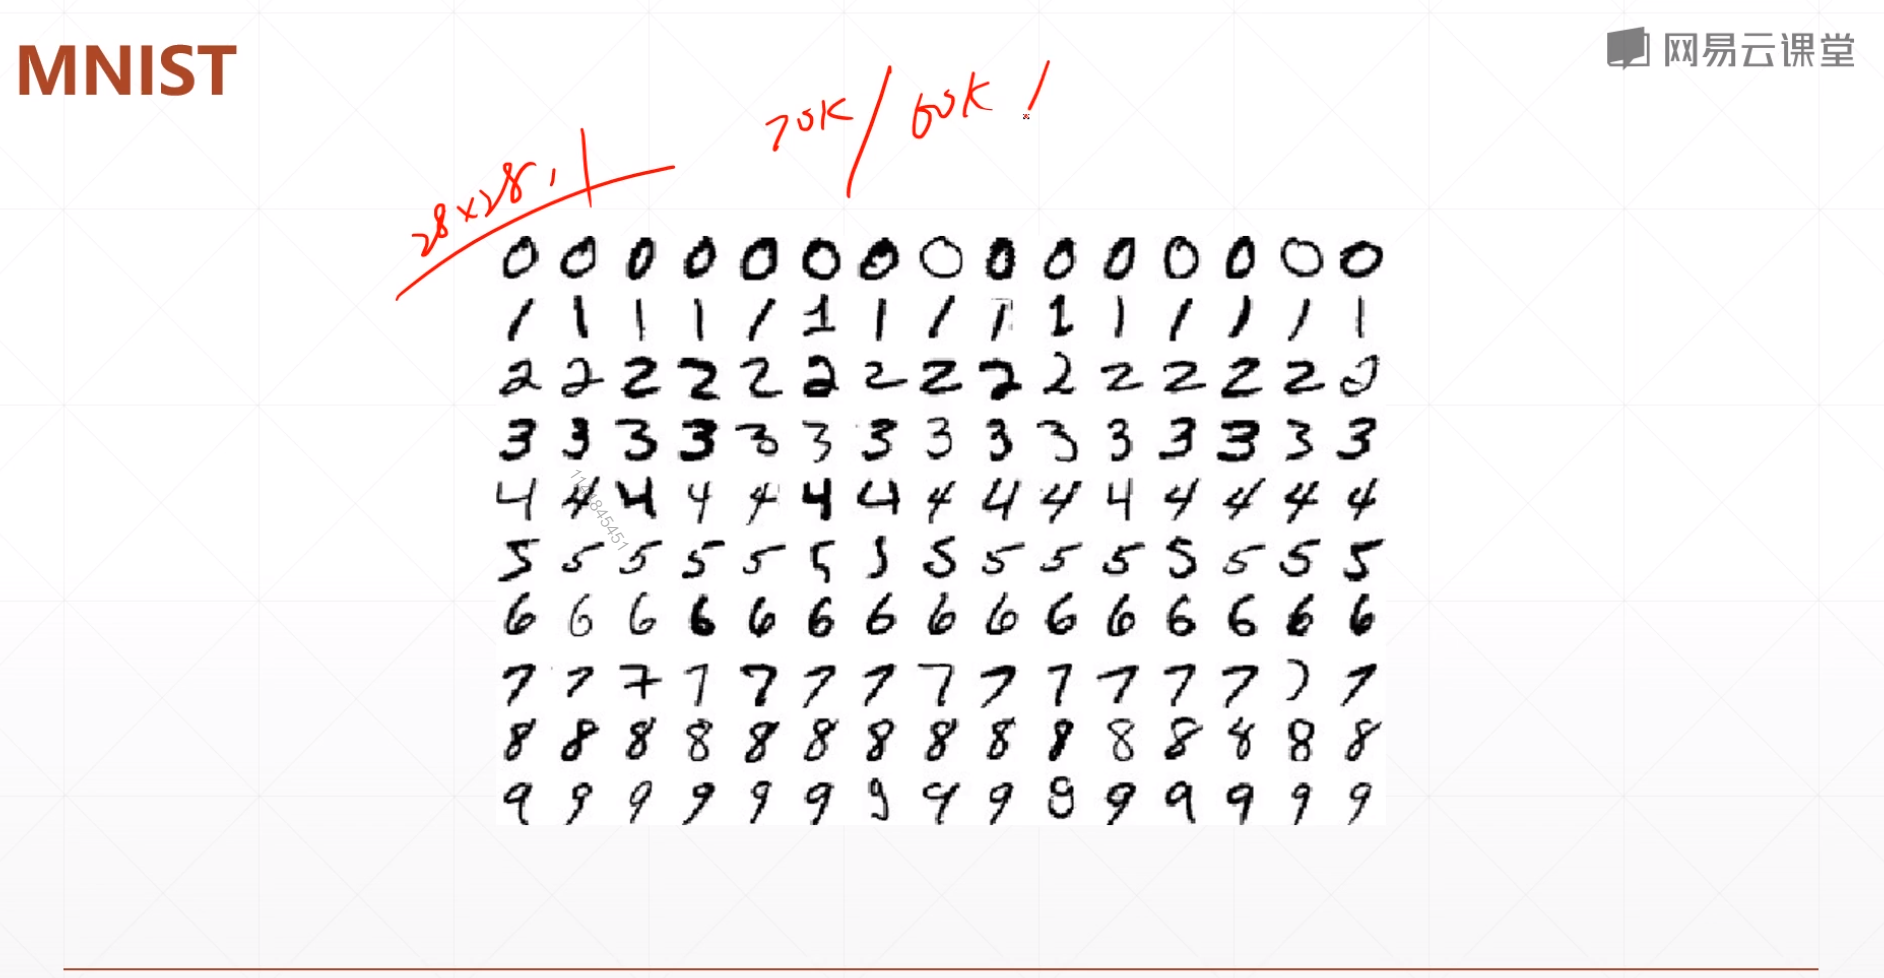 MNIST
网易云课堂
70K / 60K /
28×28, 1
0 0 0 0 0 0 0 0 0 0 0 0 0 0 0
1 1 1 1 1 1 1 1 1 1 1 1 1 1 1
2 2 2 2 2 2 2 2 2 2 2 2 2 2 2
3 3 3 3 3 3 3 3 3 3 3 3 3 3 3
4 4 4 4 4 4 4 4 4 4 4 4 4 4 4
5 5 5 5 5 5 5 5 5 5 5 5 5 5 5
6 6 6 6 6 6 6 6 6 6 6 6 6 6 6
7 7 7 7 7 7 7 7 7 7 7 7 7 7 7
8 8 8 8 8 8 8 8 8 8 8 8 8 8 8
9 9 9 9 9 9 9 9 9 9 9 9 9 9 9